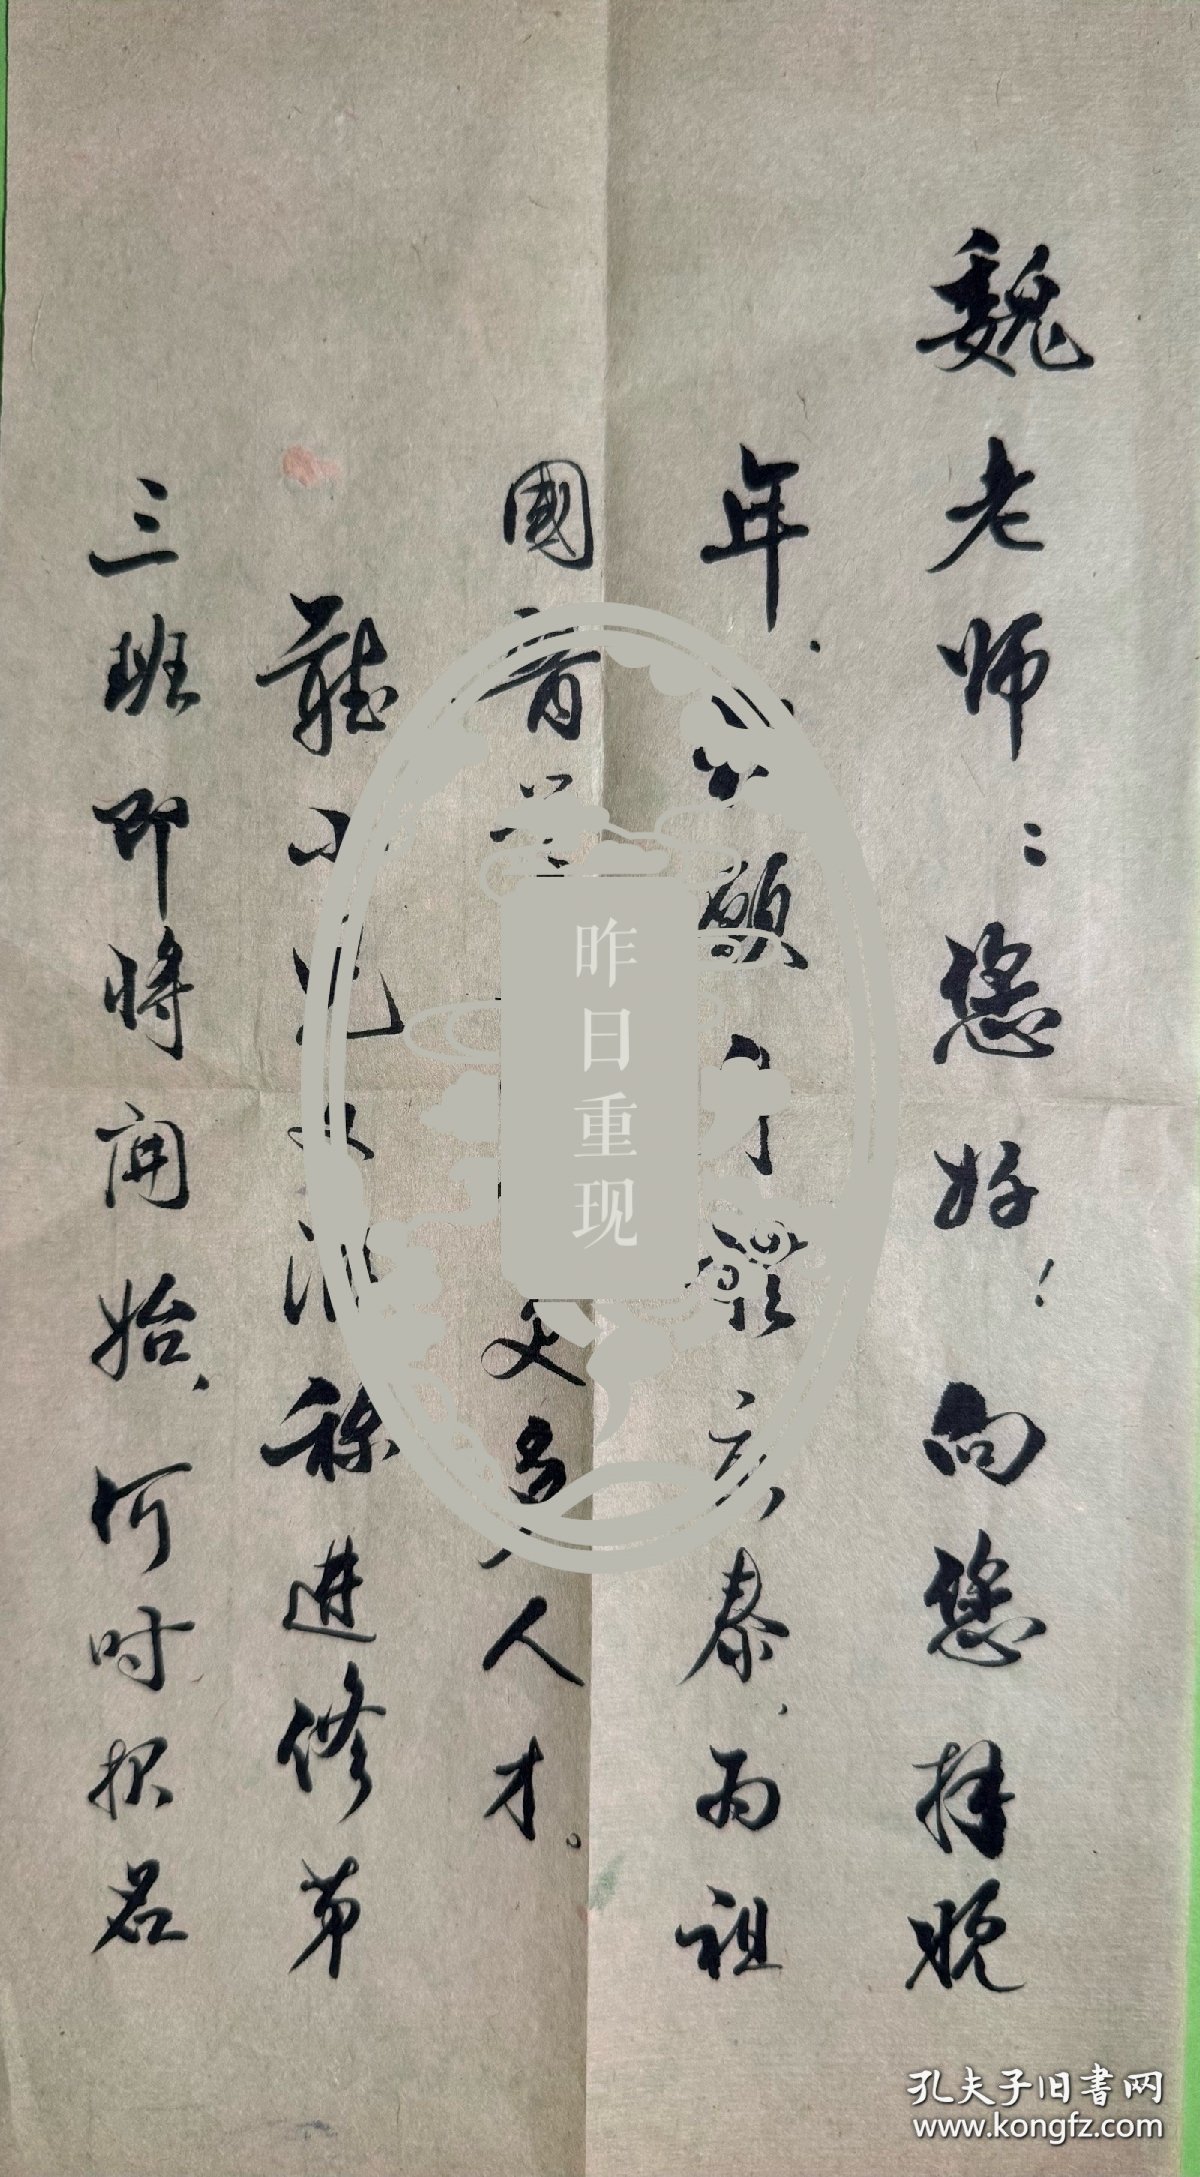 魏老师：您好！向您拜晚
年、願身體安泰、为祖
國育更多人才。
聽小称進修第
三班即将開始、何时报名
昨日重现
孔夫子旧书网
www.kongfz.com